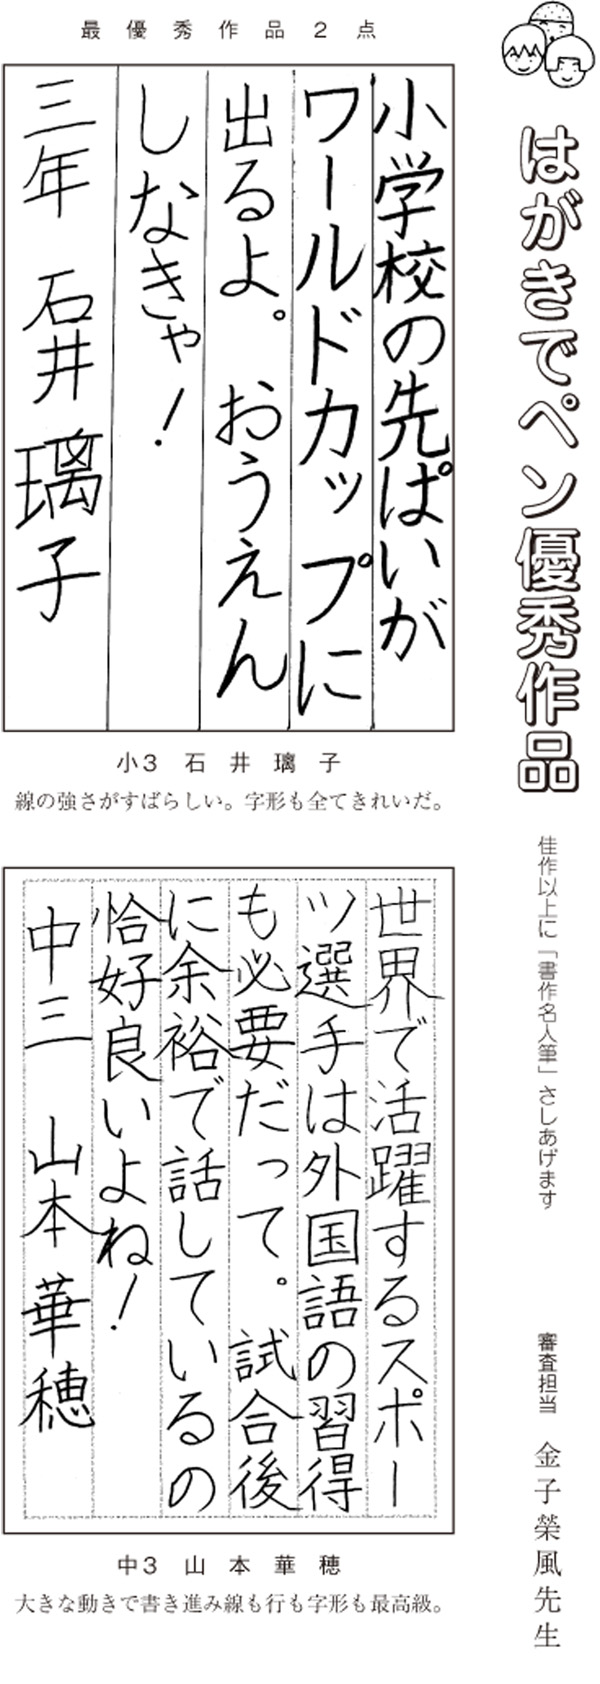 はがきでペン優秀作品
佳作以上に「書作名人筆」さしあげます
審査担当 金子榮風先生
最優秀作品2点
小学校の先ぱいが
ワールドカップに
出るよ。おうえん
しなきゃ!
三年 石井璃子
小3 石井璃子
線の強さがすばらしい。字形も全てきれいだ。
世界で活躍するスポー
ツ選手は外国語の習得
も必要だって。試合後
に余裕で話しているの
恰好良いよね!
中三 山本華穂
中3 山本華穂
大きな動きで書き進み線も行も字形も最高級。